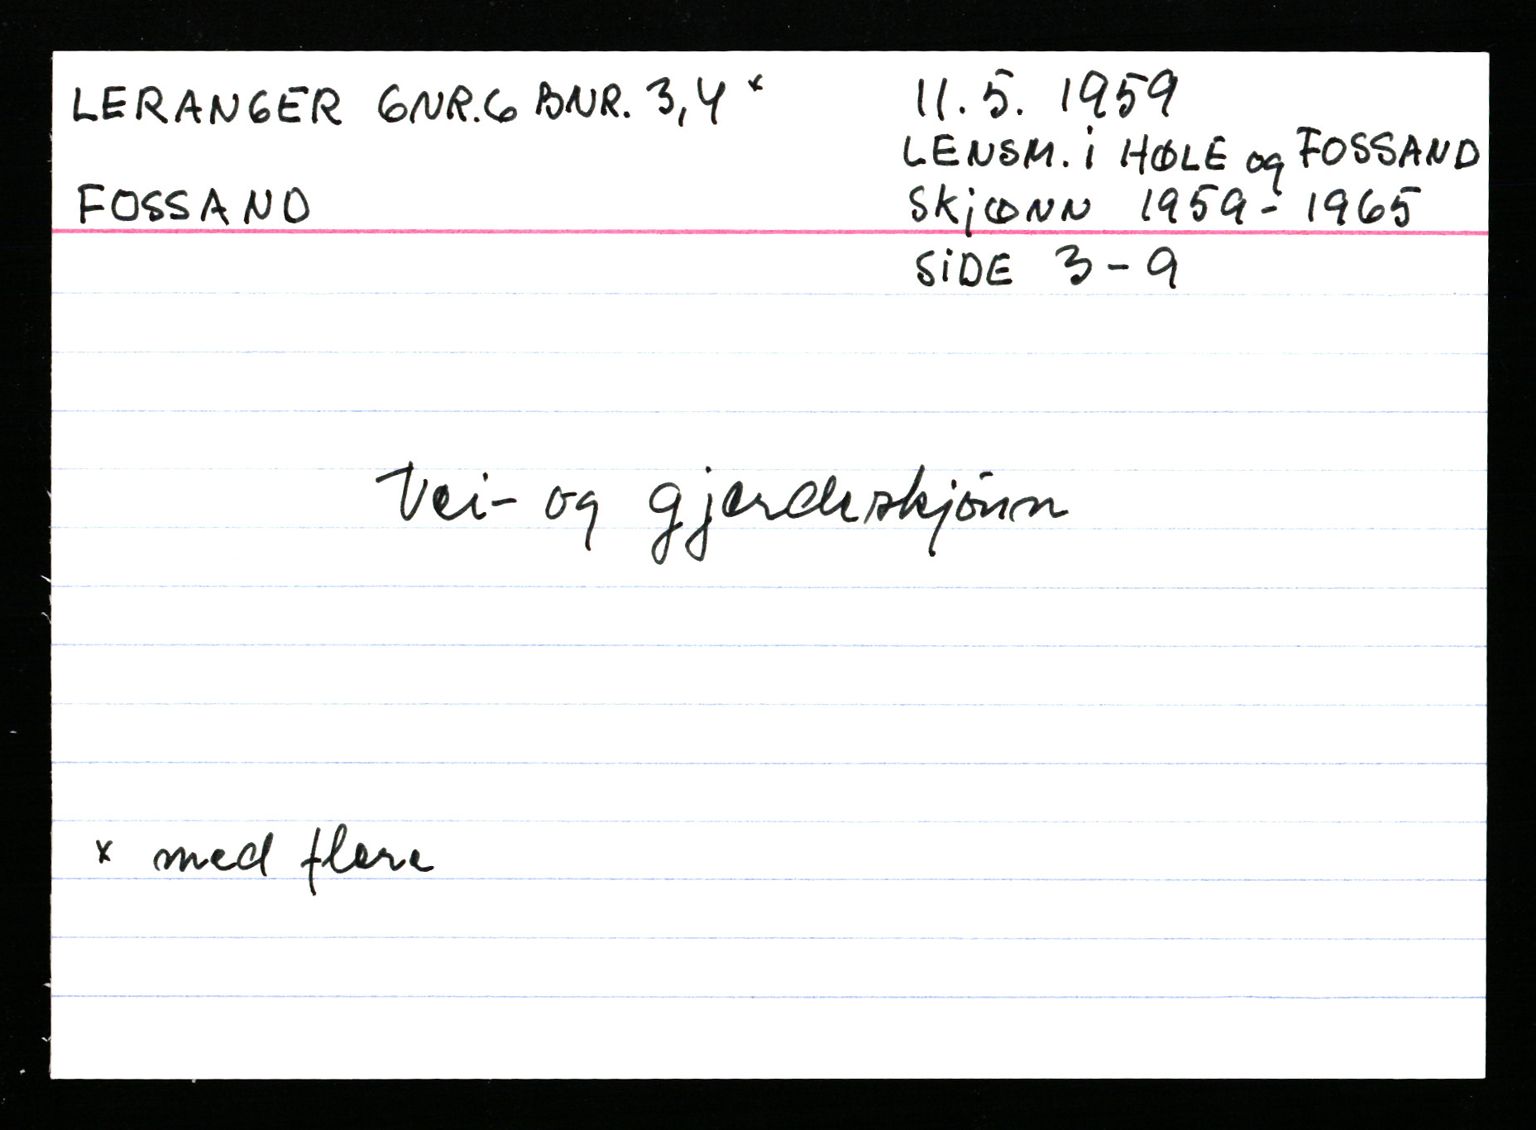 LERANGER GNR.6 BNR. 3,4 x
FOSSAND
11.5. 1959
LENSM. i HØLE og FOSSAND
SKjØNN 1959-1965
SiDE 3-9
Vei- og gjerdeskjönn
x med flere